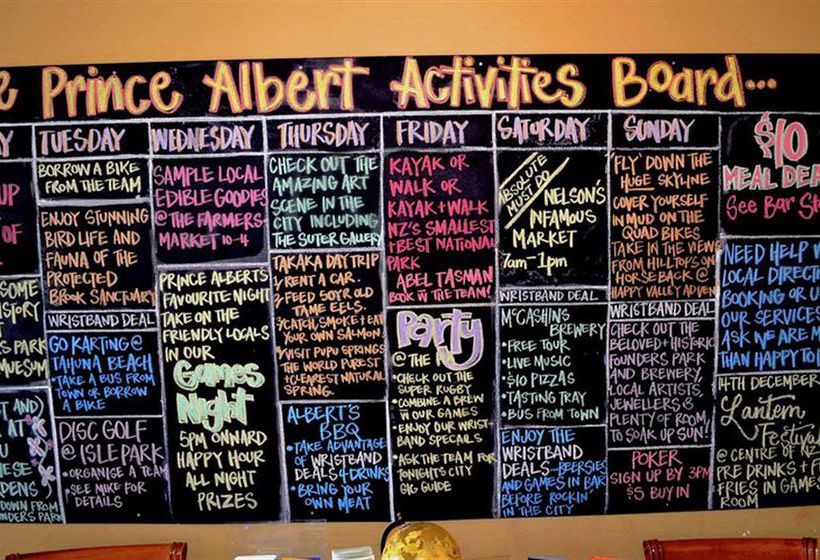 e Prince Albert Activities Board...
Y
UP
OF
SOME
HISTORY
AT
RS PARK
MUSEUM
AT
U
HESE
DENS
DOWN FROM
UNDERS PARK
TUESDAY
BORROW A BIKE
FROM THE TEAM
ENJOY STUNNING
BIRD LIFE AND
FAUNA OF THE
PROTECTED
BROOK SANCTUARY
WRISTBAND DEAL
GO KARTING @
TAHUNA BEACH
• TAKE A BUS FROM
TOWN OR BORROW
A BIKE
DISC GOLF
@ ISLE PARK
• ORGANISE A TEAM
• SEE MIKE FOR
DETAILS
WEDNESDAY
SAMPLE LOCAL
EDIBLE GOODIES
@ THE FARMERS
MARKET 10-4
PRINCE ALBERTS
FAVOURITE NIGHT
TAKE ON THE
FRIENDLY LOCALS
IN OUR
Games
Night
5PM ONWARD
HAPPY HOUR
ALL NIGHT
PRIZES
THURSDAY
CHECK OUT THE
AMAZING ART
SCENE IN THE
CITY INCLUDING
THE SUTER GALLERY
TAKAKA DAY TRIP
1 RENT A CAR.
2 FEED 50YR OLD
TAME EELS.
3 CATCH, SMOKE + EAT
YOUR OWN SALMON
4 VISIT PUPU SPRINGS
THE WORLD PUREST
+ CLEAREST NATURAL
SPRING
ALBERT'S
BBQ
• TAKE ADVANTAGE
OF WRISTBAND
DEALS 4 DRINKS
• BRING YOUR
OWN MEAT
FRIDAY
KAYAK OR
WALK OR
KAYAK + WALK
NZ'S SMALLEST
+ BEST NATIONAL
PARK
ABEL TASMAN
BOOK W THE TEAM!
Party
@ THE
• CHECK OUT THE
SUPER RUGBY
• COMBINE A BREW
W OUR GAMES
• ENJOY OUR WRIST-
BAND SPECIALS
• ASK THE TEAM FOR
TONIGHTS CITY
GIG GUIDE
SATURDAY
ABSOLUTE
MUST DO
NELSON'S
INFAMOUS
MARKET
7am - 1pm
WRISTBAND DEAL
McCASHINS
BREWERY
• FREE TOUR
• LIVE MUSIC
• $10 PIZZAS
• TASTING TRAY
• BUS FROM TOWN
ENJOY THE
WRISTBAND
DEALS...BEERSIES
AND GAMES IN BAR
BEFORE ROCKIN'
IN THE CITY
SUNDAY
'FLY' DOWN THE
HUGE SKYLINE
COVER YOURSELF
IN MUD ON THE
QUAD BIKES
TAKE IN THE VIEWS
FROM HILLTOPS ON
HORSEBACK @
HAPPY VALLEY ADVEN
WRISTBAND DEAL
CHECK OUT THE
BELOVED + HISTORIC
FOUNDERS PARK
AND BREWERY,
LOCAL ARTISTS,
JEWELLERS &
PLENTY OF ROOM
TO SOAK UP SUN!
POKER
SIGN UP BY 3PM
$5 BUY IN
$10
MEAL DEA
See Bar St
NEED HELP W
LOCAL DIRECTI
BOOKING OR U
OUR SERVICES
ASK WE ARE M
THAN HAPPY TO
14TH DECEMBER
Lantern
Festival
@ CENTRE OF NZ
PRE DRINKS + F
FRIES IN GAMES
ROOM